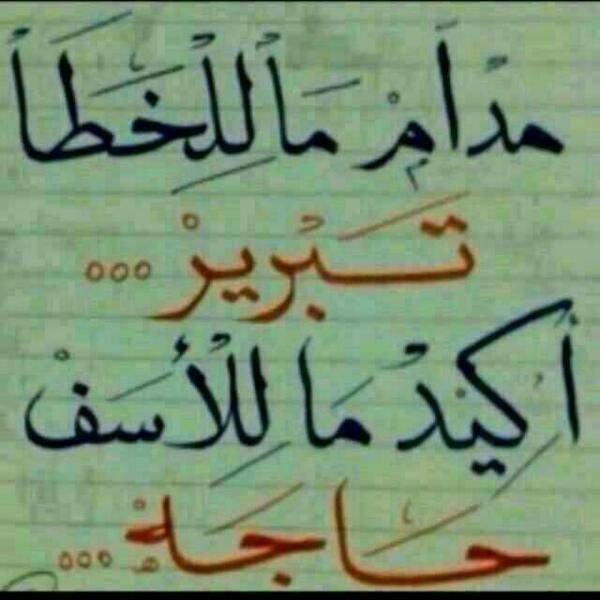 مدام ما للخطأ
تبرير...
أكيد ما للأسف
حاجه...